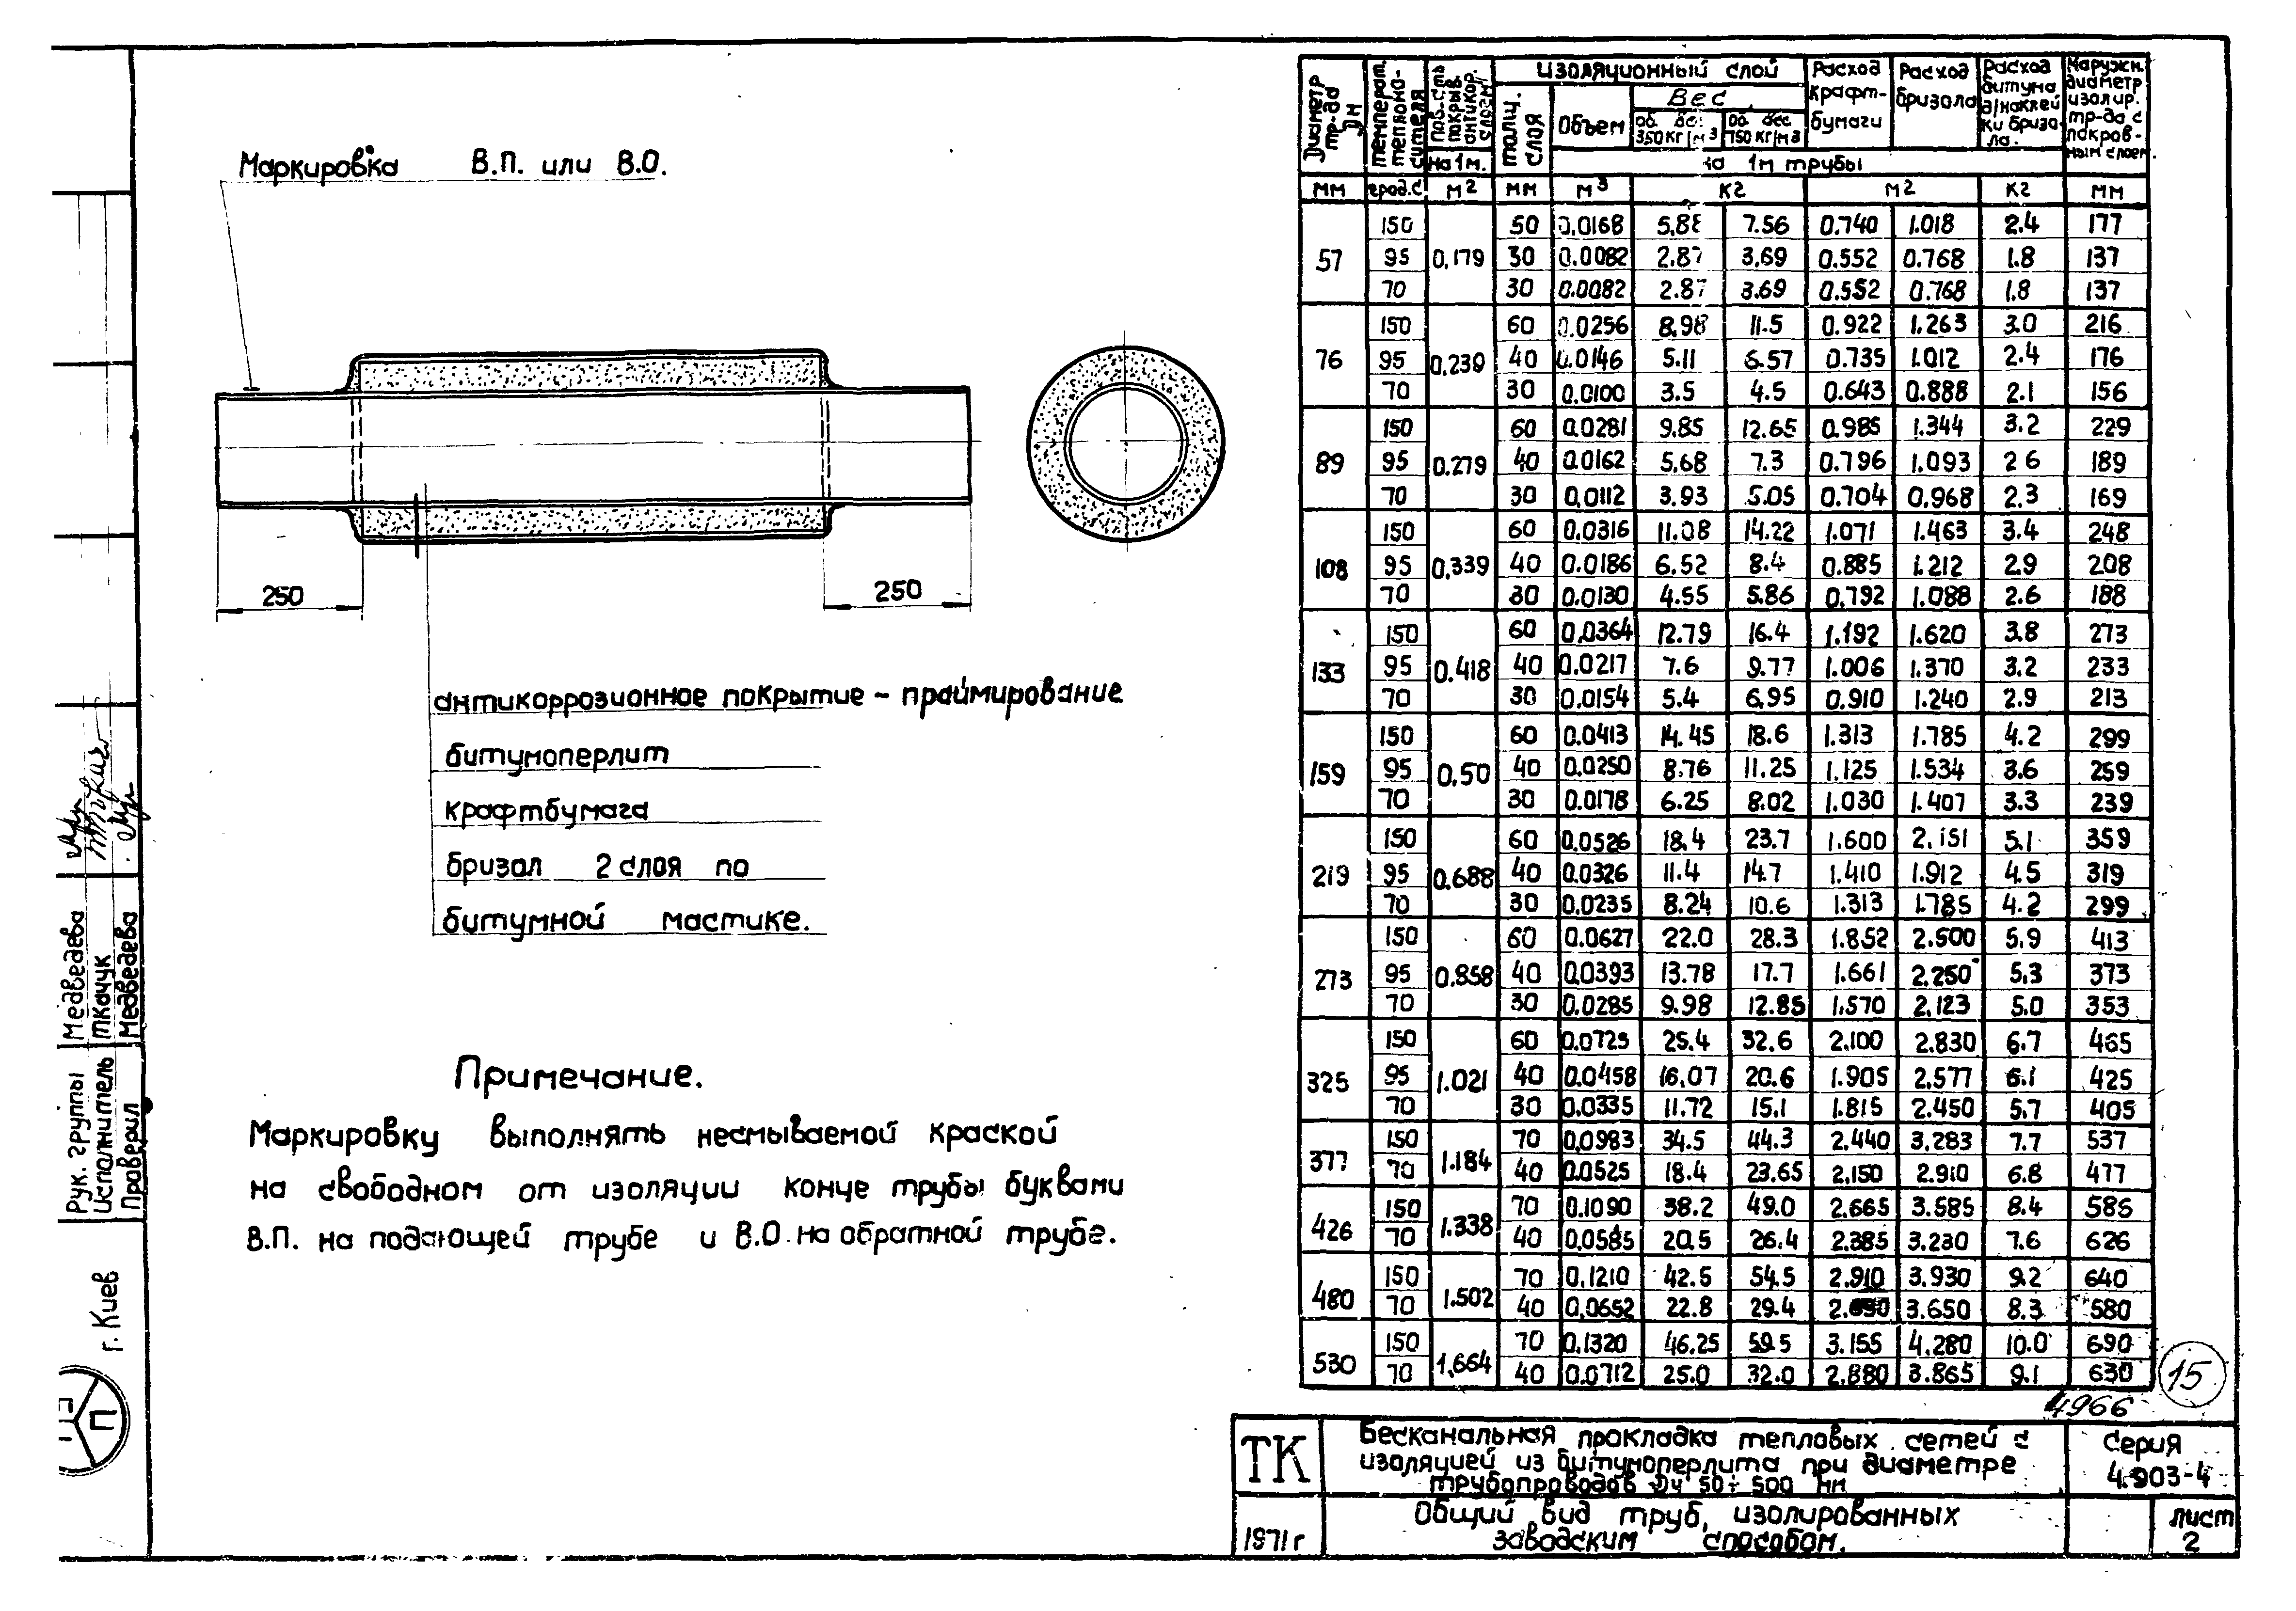 Маркировка В.П. или В.О.
250
250
антикоррозионное покрытие – праймирование
битумоперлит
крафтбумага
бризол 2 слоя по
битумной мастике.
Примечание.
Маркировку выполнять несмываемой краской
на свободном от изоляции конце трубы буквами
В.П. на подающей трубе и В.О. на обратной трубе.
Диаметр тр-да Дн
температ. теплоно-сителя
пов.сть покрыв. антикор. слоем
изоляционный слой
толщ. слоя
Объем
Вес
об. вес 350 кг/м3
об. вес 750 кг/м3
Расход крафт-бумаги
Расход бризола
Расход битума д/наклей ки бризо ла.
Наружн. диаметр изолир. тр-да с покров-ным слоем.
на 1м.
на 1м трубы
мм град.с м2 мм м3 кг м2 кг мм
57 0,179
150 50 0,0168 5,88 7.56 0.740 1.018 2.4 177
95 30 0.0082 2.87 3,69 0.552 0.768 1.8 137
70 30 0.0082 2.87 3.69 0.552 0.768 1.8 137
76 0.239
150 60 0.0256 8,98 11.5 0.922 1.263 3.0 216
95 40 0.0146 5.11 6.57 0.735 1.012 2.4 176
70 30 0.0100 3.5 4.5 0.643 0.888 2.1 156
89 0.279
150 60 0.0281 9.85 12.65 0.985 1.344 3.2 229
95 40 0.0162 5,68 7.3 0.796 1.093 2 6 189
70 30 0,0112 3.93 5.05 0.704 0.968 2.3 169
108 0,339
150 60 0.0316 11.08 14.22 1.071 1.463 3.4 248
95 40 0.0186 6.52 8.4 0.885 1.212 2.9 208
70 30 0.0130 4.55 5.86 0,792 1.088 2.6 188
133 0.418
150 60 0,0364 12.79 16.4 1.192 1.620 3.8 273
95 40 0.0217 7.6 9.77 1.006 1.370 3.2 233
70 30 0.0154 5.4 6,95 0.910 1.240 2.9 213
159 0,50
150 60 0.0413 14.45 18.6 1.313 1.785 4.2 299
95 40 0.0250 8.76 11.25 1.125 1.534 3.6 259
70 30 0.0178 6.25 8.02 1.030 1.407 3.3 239
219 0.688
150 60 0.0526 18.4 23.7 1.600 2.151 5.1 359
95 40 0.0326 11.4 14.7 1.410 1.912 4.5 319
70 30 0.0235 8.24 10.6 1.313 1.785 4.2 299
273 0.858
150 60 0.0627 22.0 28.3 1.852 2.500 5.9 413
95 40 0.0393 13.78 17.7 1.661 2.250 5.3 373
70 30 0.0285 9.98 12.85 1.570 2.123 5.0 353
325 1.021
150 60 0.0725 25.4 32.6 2.100 2.830 6.7 465
95 40 0.0458 16,07 20.6 1.905 2.577 6.1 425
70 30 0.0335 11.72 15.1 1.815 2.450 5.7 405
377 1.184
150 70 0,0983 34.5 44.3 2.440 3.283 7.7 537
70 40 0.0525 18.4 23.65 2,150 2.910 6.8 477
426 1.338
150 70 0.1090 38.2 49.0 2.665 3.585 8.4 586
70 40 0.0585 20.5 26.4 2.385 3.230 7.6 626
480 1.502
150 70 0,1210 42.5 54.5 2.910 3.930 9.2 640
70 40 0,0652 22.8 29.4 3.650 8.3 580
530 1,664
150 70 0,1320 46.25 59.5 3.155 4.280 10.0 690
70 40 0.0712 25.0 32.0 2.880 3.865 9.1 630
15
4966
ТК
1971 г
Бесканальная прокладка тепловых сетей с
изоляцией из битумоперлита при диаметре
трубопроводов Ду 50÷500 мм
Серия
4.903-4
Общий вид труб, изолированных
заводским способом.
лист
2
Рук. группы Медведева
Исполнитель Ткачук
Проверил Медведева
г. Киев